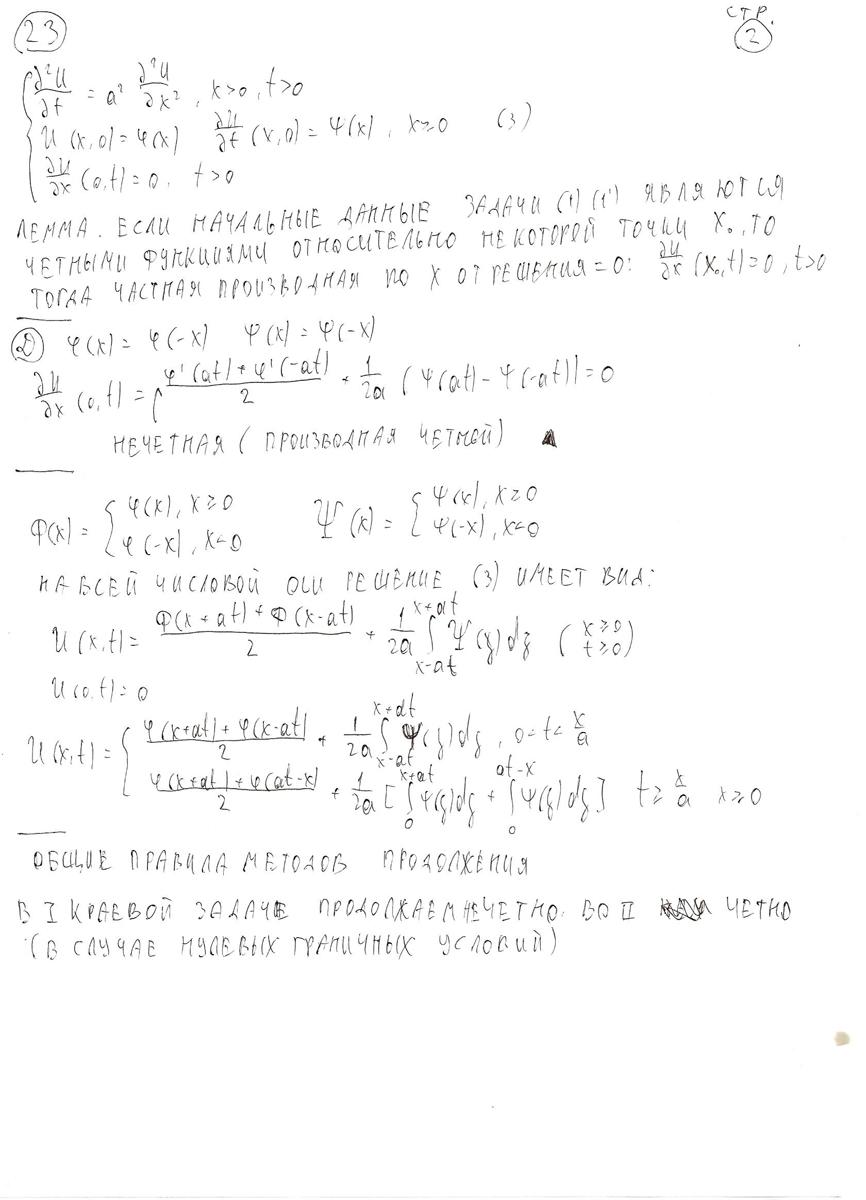 23
СТР. 2
∂²U/∂t = a² ∂²U/∂x², x>0, t>0
U(x,0) = φ(x) ∂U/∂t (x,0) = ψ(x), x≥0 (3)
∂U/∂x (0,t) = 0, t>0
ЛЕММА. ЕСЛИ НАЧАЛЬНЫЕ ДАННЫЕ ЗАДАЧИ (1) (1') ЯВЛЯЮТСЯ
ЧЕТНЫМИ ФУНКЦИЯМИ ОТНОСИТЕЛЬНО НЕКОТОРОЙ ТОЧКИ X₀, ТО
ТОГДА ЧАСТНАЯ ПРОИЗВОДНАЯ ПО X ОТ РЕШЕНИЯ = 0: ∂U/∂x (x₀,t) = 0, t>0
Д φ(x) = φ(-x) ψ(x) = ψ(-x)
∂U/∂x (0,t) = (φ'(at) + φ'(-at))/2 + 1/2a (ψ(at) - ψ(-at)) = 0
НЕЧЕТНАЯ (ПРОИЗВОДНАЯ ЧЕТНОЙ)
Ф(x) = { φ(x), x≥0 Ψ(x) = { ψ(x), x≥0
φ(-x), x<0 ψ(-x), x<0
НА ВСЕЙ ЧИСЛОВОЙ ОСИ РЕШЕНИЕ (3) ИМЕЕТ ВИД:
U(x,t) = (Ф(x+at) + Ф(x-at))/2 + 1/2a ∫_{x-at}^{x+at} Ψ(z)dz (x≥0 t≥0)
U(0,t) = 0
U(x,t) = { (φ(x+at) + φ(x-at))/2 + 1/2a ∫_{x-at}^{x+at} ψ(z)dz, 0<t<x/a
(φ(x+at) + φ(at-x))/2 + 1/2a [∫_0^{x+at} ψ(z)dz + ∫_0^{at-x} ψ(z)dz] t≥x/a x≥0
ОБЩИЕ ПРАВИЛА МЕТОДОВ ПРОДОЛЖЕНИЯ
В I КРАЕВОЙ ЗАДАЧЕ ПРОДОЛЖАЕМ НЕЧЕТНО. ВО II ЧЕТНО
(В СЛУЧАЕ НУЛЕВЫХ ГРАНИЧНЫХ УСЛОВИЙ)